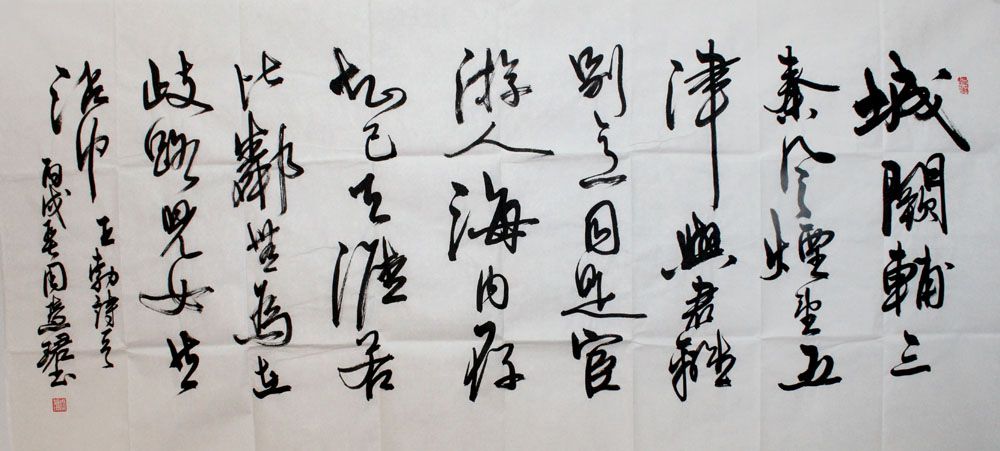 城闕輔三
秦風煙望五
津與君離
別意同是宦
游人海内存
知己天涯若
比鄰無為在
歧路兒女共
沾巾 王勃詩
丙戌 周慧珺书